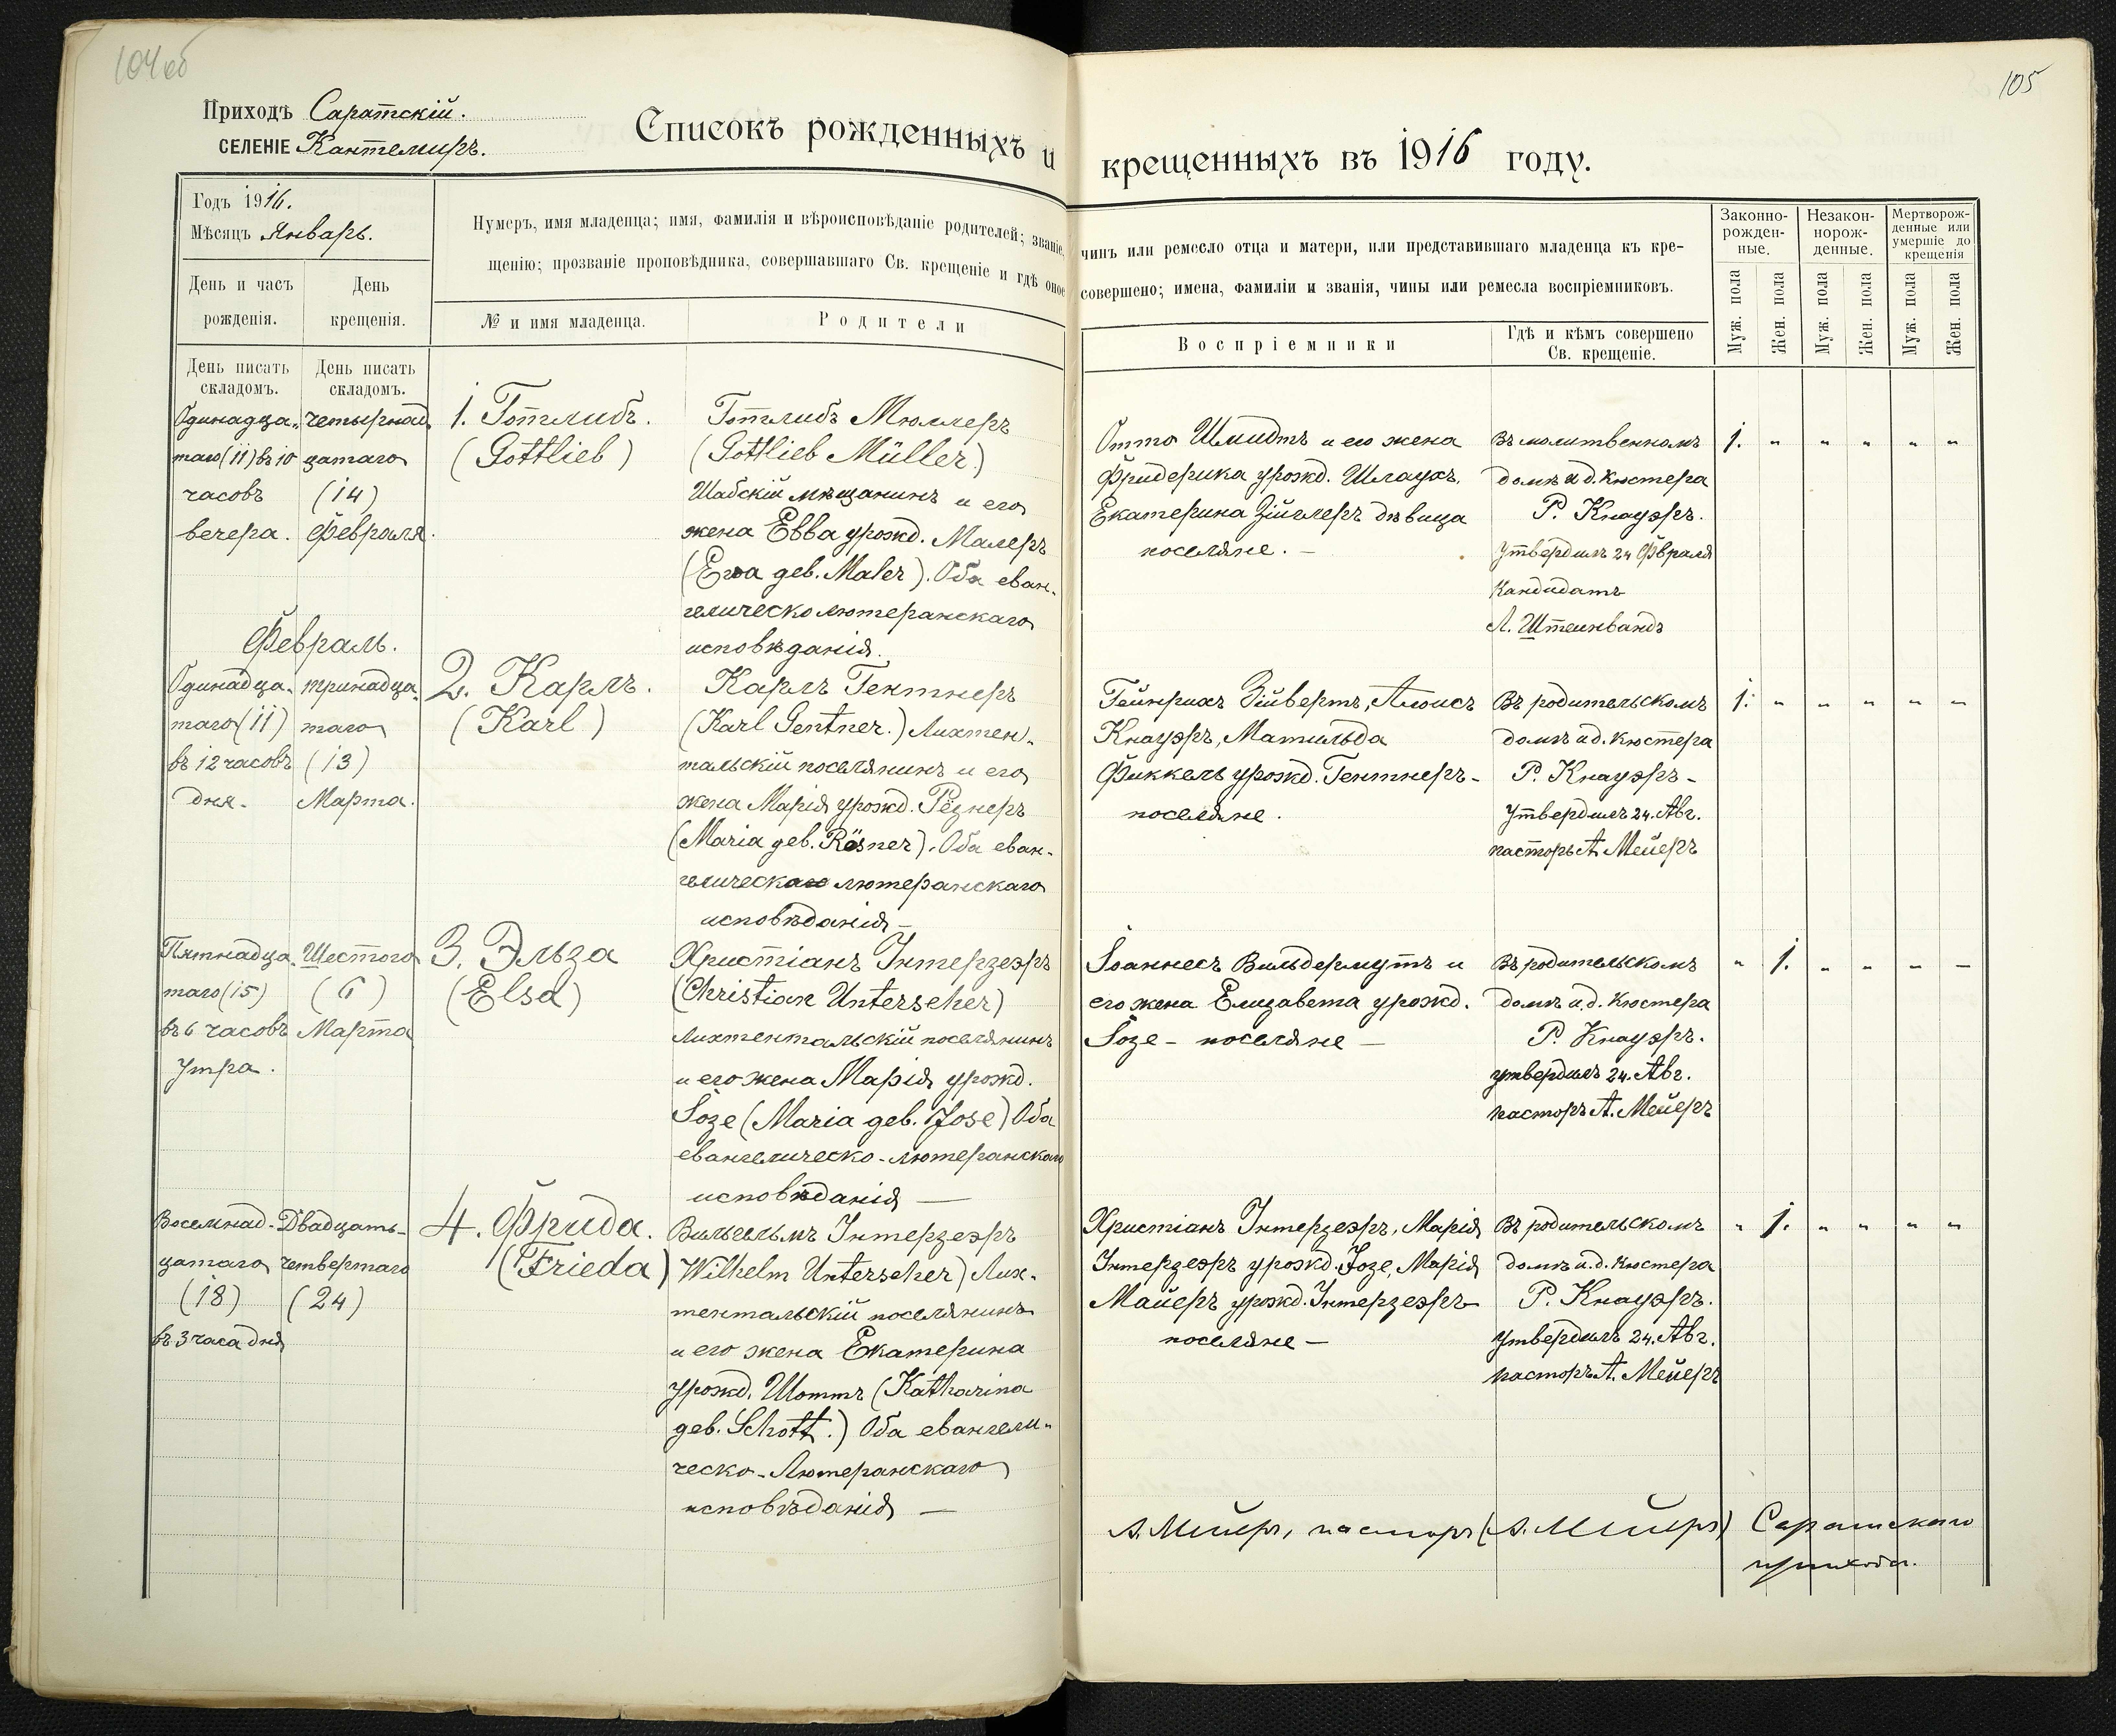 104 об
105
Приходъ Саратскій.
СЕЛЕНІЕ Кантемиръ.
Списокъ рожденныхъ и крещенныхъ въ 1916 году.
Годъ 1916.
Мѣсяцъ Январь.
День и часъ
рожденія.
День
крещенія.
Нумеръ, имя младенца; имя, фамилія и вѣроисповѣданіе родителей; званіе,
щенію; прозваніе проповѣдника, совершавшаго Св. крещеніе и гдѣ оное
№ и имя младенца.
Родители
чинъ или ремесло отца и матери, или представившаго младенца къ кре-
совершено; имена, фамиліи и званія, чины или ремесла воспріемниковъ.
Воспріемники
Гдѣ и кѣмъ совершено
Св. крещеніе.
Законно-
рожден-
ные.
Незакон-
норож-
денные.
Мертворож-
денные или
умершіе до
крещенія
Муж. пола
Жен. пола
Муж. пола
Жен. пола
Муж. пола
Жен. пола
День писать
складомъ.
День писать
складомъ.
Одинадца-
таго (11) въ 10
часовъ
вечера.
четырнад-
цатаго
(14)
Февраля.
1. Готлибъ.
(Gottlieb)
Готлибъ Мюллеръ
(Gottlieb Müller)
Шабскій мѣщанинъ и его
жена Евва урожд. Малеръ
(Ewa geb. Maler). Оба еван-
гелическо лютеранскаго
исповѣданія.
Отто Шмидтъ и его жена
Фридерика урожд. Шлаухъ,
Екатерина Зіиглеръ дѣвица
поселяне. -
Въ молитвенномъ
домѣ и д. кюстера
Р. Кнауэръ.
Утвердилъ 24 Февраля
Кандидатъ
Л. Штеинвандъ
1. " " " " "
Февраль.
Одинадца-
таго (11)
въ 12 часовъ
дня.
тринадца-
таго
(13)
Марта.
2. Карлъ.
(Karl)
Карлъ Гентнеръ
(Karl Gentner.) Лихтен-
тальскій поселянинъ и его
жена Марія урожд. Рёзнеръ
(Maria geb. Rösner). Оба еван-
гелическаго лютеранскаго
исповѣданія -
Гейнрихъ Зійвертъ, Алоисъ
Кнауэръ, Матильда
Фиккель урожд. Гентнеръ -
поселяне.
Въ родительскомъ
домѣ и д. кюстера
Р. Кнауэръ -
Утвердилъ 24. Авг.
пасторъ А Мейеръ
1. " " " " "
Пятнадца-
таго (15)
въ 6 часовъ
утра.
Шестого
(6)
Марта
3. Эльза
(Elsa)
Христіанъ Унтерзееръ
(Christian Unterseher)
Лихтентальскій поселянинъ
и его жена Марія урожд.
Іозе (Maria geb. Jose) Оба
евангелическо-лютеранскаго
исповѣданія —
Іоаннесъ Вильдермутъ и
его жена Елизавета урожд.
Іозе - поселяне —
Въ родительскомъ
домѣ и.д. кюстера
Р. Кнауэръ.
утвердилъ 24. Авг.
пасторъ А. Мейеръ
" 1. " " " "
Восемнад-
цатаго
(18)
въ 3 часа дня
Двадцать-
четвертаго
(24)
4. Фрида.
(Frieda)
Вильгельмъ Унтерзеэръ
Wilhelm Unterseher) Лих-
тентальскій поселянинъ
и его жена Екатерина
урожд. Шоттъ (Katharina
geb. Schott.) Оба евангели-
ческо-Лютеранскаго
исповѣданія —
Христіанъ Унтерзеэръ, Марія
Унтерзеэръ урожд. Іозе, Марія
Майеръ урожд. Унтерзеэръ
поселяне —
Въ родительскомъ
домѣ и.д. кюстера
Р. Кнауэръ.
утвердилъ 24. Авг.
пасторъ А. Мейеръ
" 1. " " " "
А. Мейеръ, пасторъ (А. Мейеръ) Саратскаго
прихода.